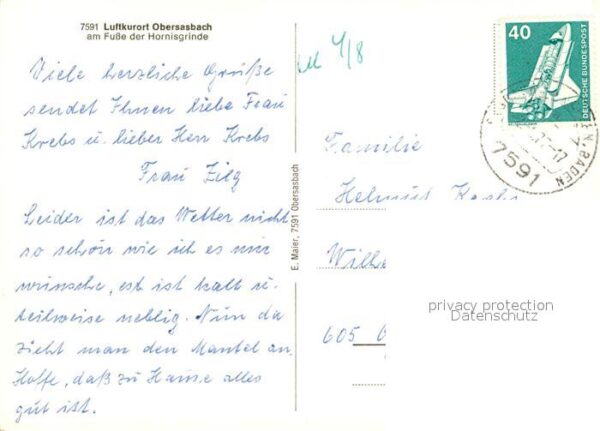 7591 Luftkurort Obersasbach
am Fuße der Hornisgrinde
Viele herzliche Grüße
sendet Ihnen liebe Frau
Krebs u. lieber Herr Krebs
Frau Zieg
Leider ist das Wetter nicht
so schön wie ich es mir
wünsche, est ist kalt u.
teilweise neblig. Nun da
zieht man den Mantel an.
Hoffe, daß zu Hause alles
gut ist.
E. Maier, 7591 Obersasbach
4/8
40
DEUTSCHE BUNDESPOST
7591
BADEN
Familie
Helmut
Wilhe
605
privacy protection
Datenschutz